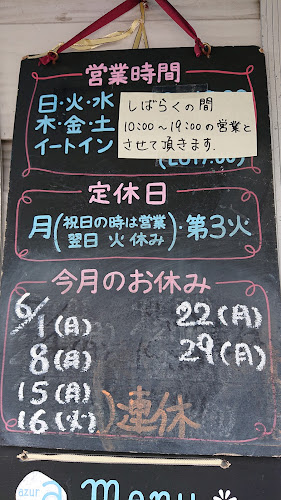 営業時間
日・火・水
木・金・土
イートイン
しばらくの間
10:00～19:00の営業と
させて頂きます.
(LO17:00)
定休日
月(祝日の時は営業 翌日 火 休み)・第3火・
今月のお休み
6/1(月)
8(月)
15(月)
16(火)
連休
22(月)
29(月)
azur
menu